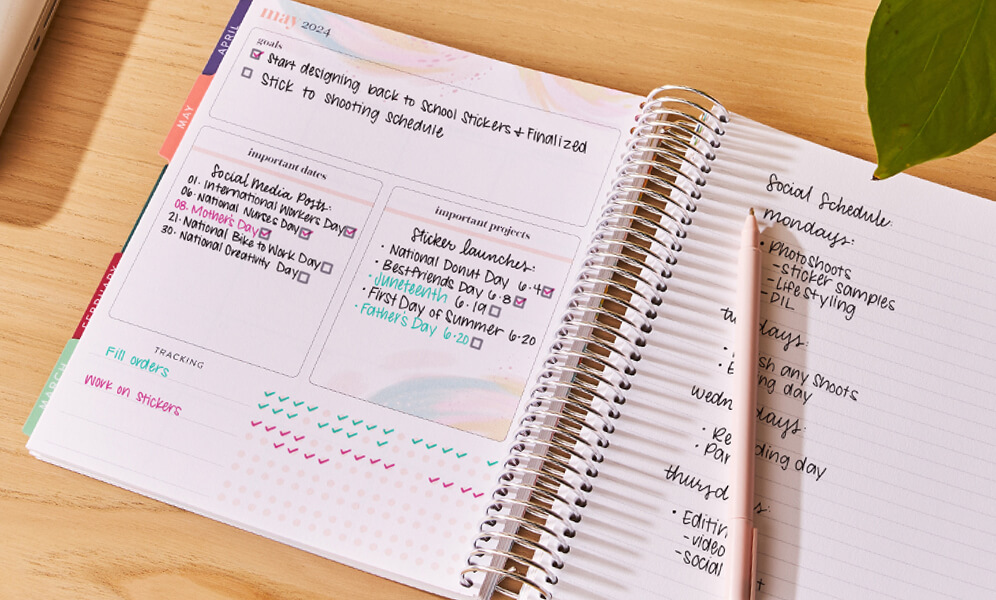 APRIL
MAY
FEBRUARY
MARCH
may 2024
goals
Start designing back to School Stickers + Finalized
Stick to shooting schedule
important dates
Social Media Posts:
01. International Workers Day
06. National Nurses Day
08. Mother's Day
21. National Bike to Work Day
30. National Creativity Day
important projects
Sticker launches:
• National Donut Day 6.4
• Best Friends Day 6.8
• Juneteenth 6.19
• First Day of Summer 6.20
• Father's Day 6.20
TRACKING
Fill orders
Work on stickers
Social Schedule:
mondays:
• Photoshoots
-Sticker samples
-Life Styling
-DIL
any shoots
day
day
• Editin
-video
-social